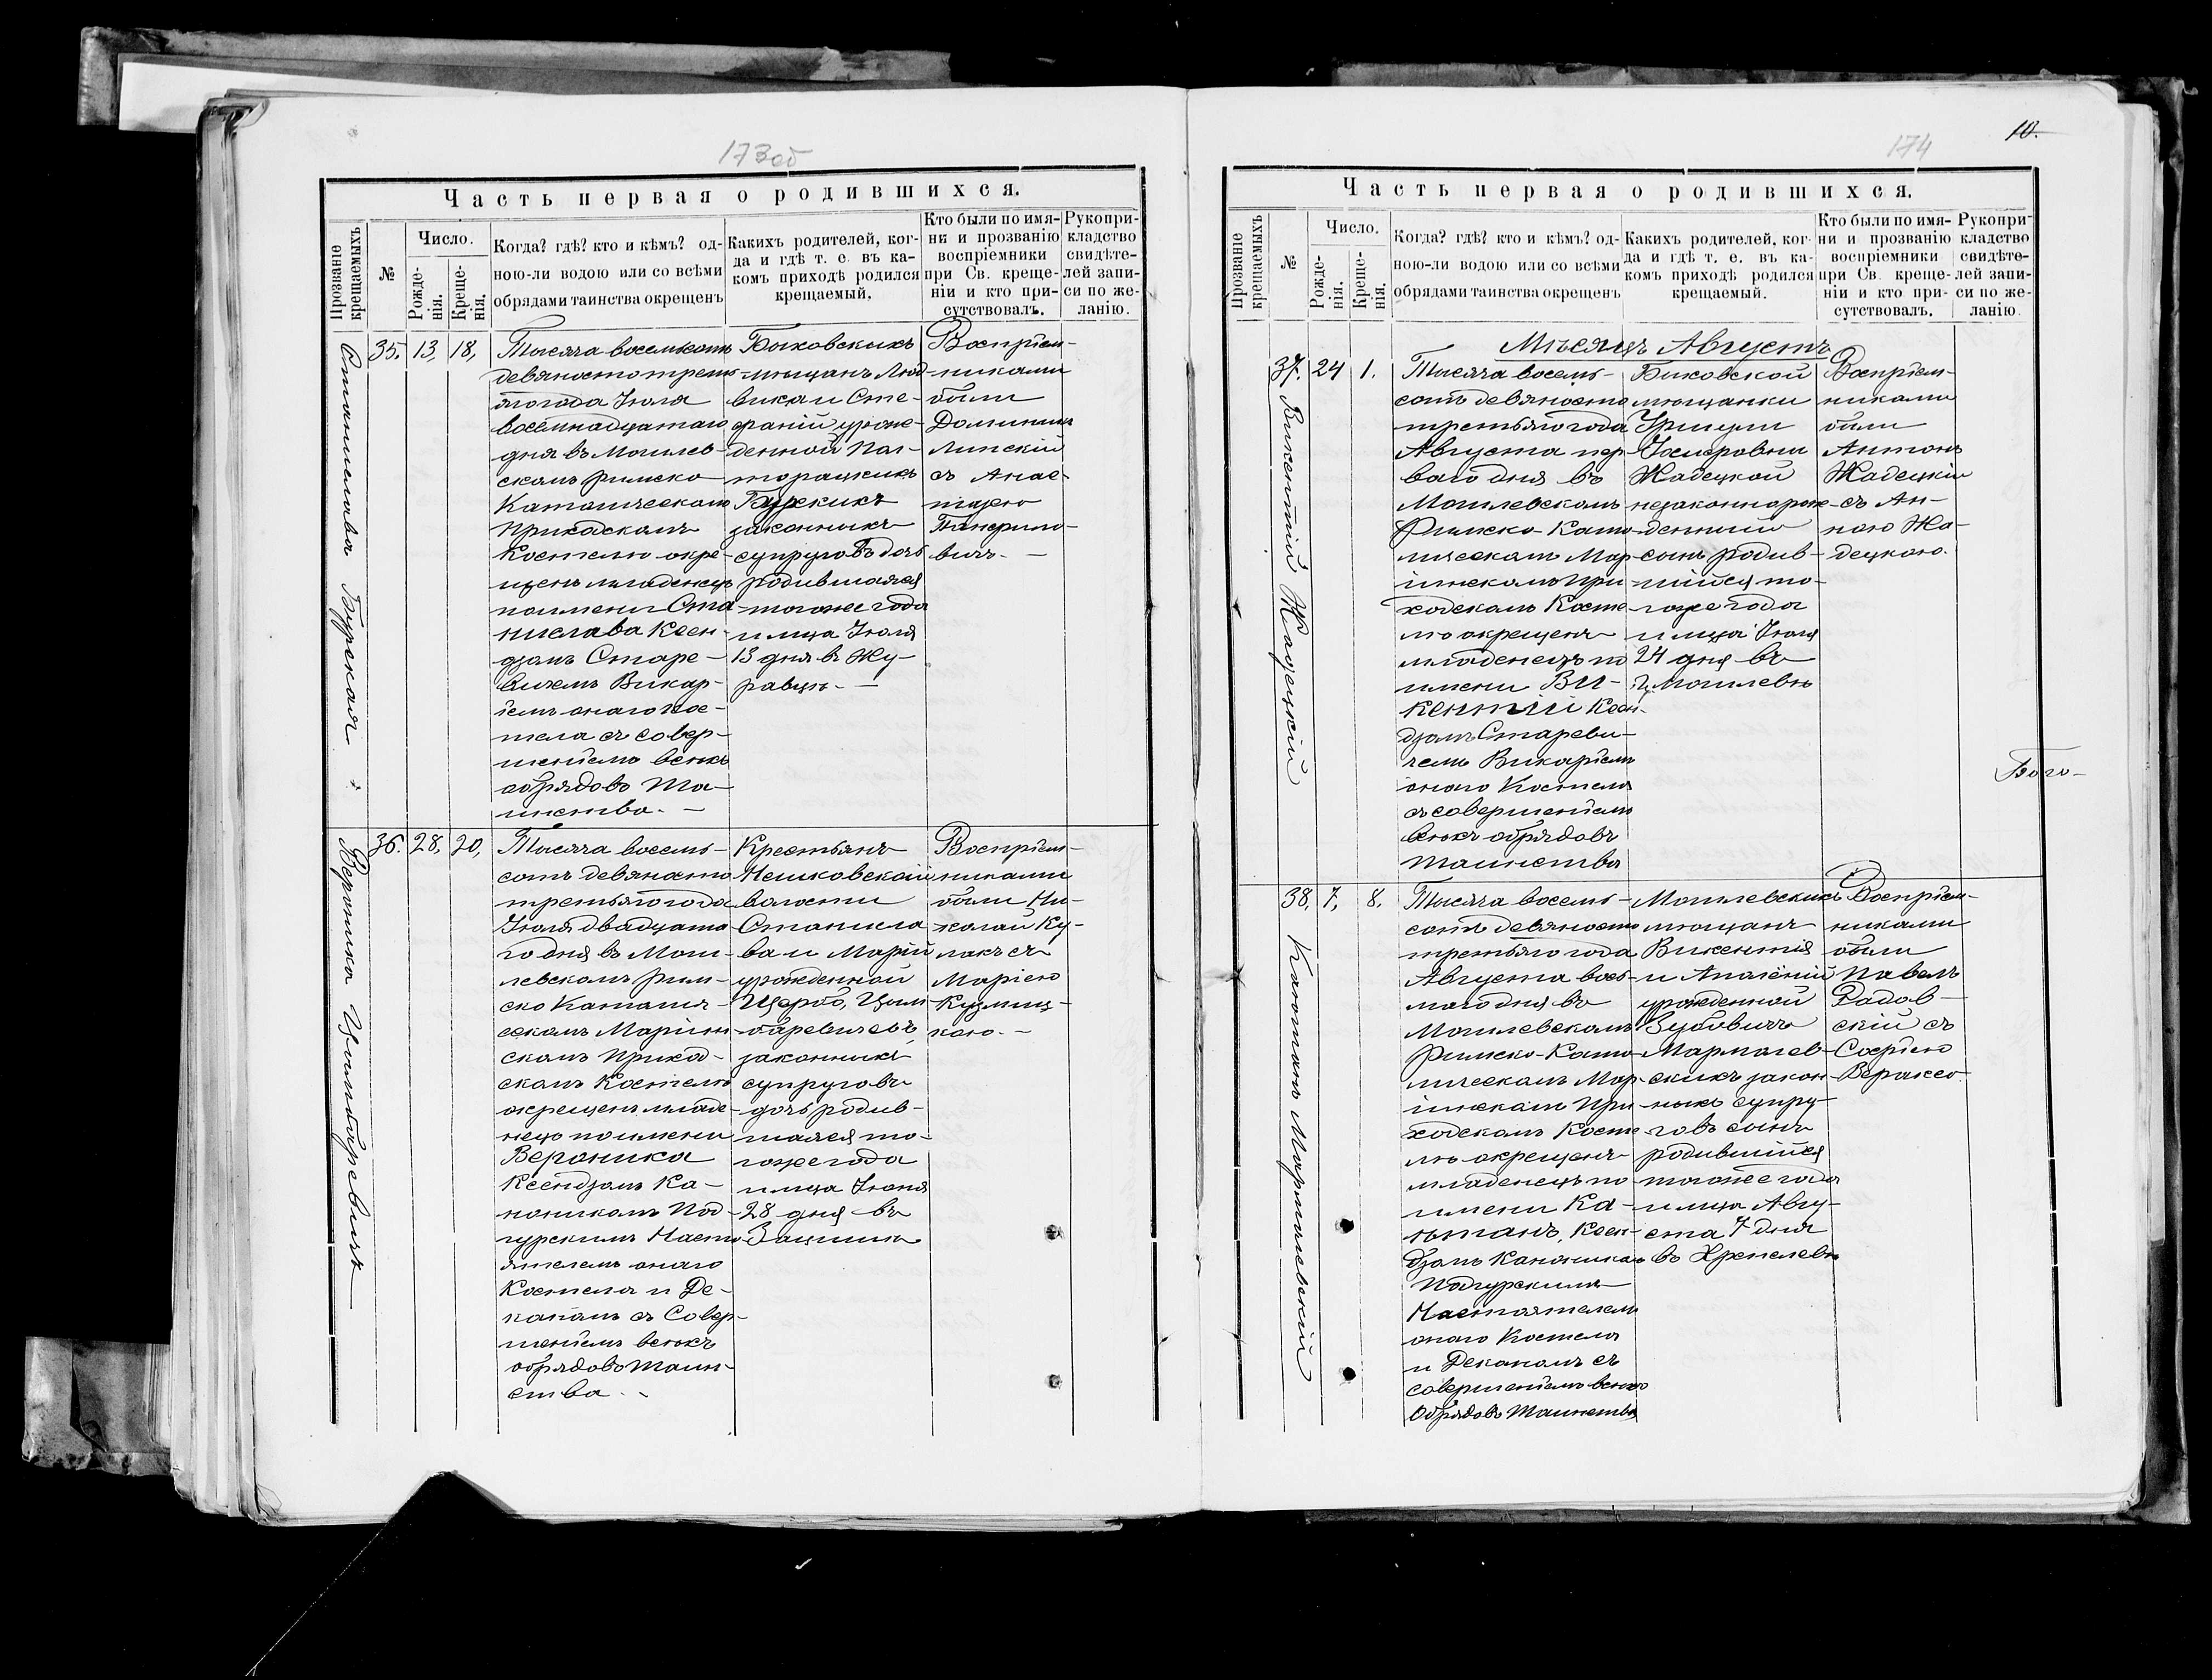 173об
Часть первая о родившихся.
Прозваніе крещаемыхъ
№
Число.
Рожде-
нія.
Креще-
нія.
Когда? гдѣ? кто и кѣмъ? од-
ною-ли водою или со всѣми
обрядами таинства окрещенъ
Какихъ родителей, ког-
да и гдѣ т. е. въ ка-
комъ приходѣ родился
крещаемый.
Кто были по имя-
ни и прозванію
воспріемники
при Св. креще-
ніи и кто при-
сутствовалъ.
Рукопри-
кладство
свидѣте-
лей запи-
си по же-
ланію.
Станислава Бурская
35. 13, 18,
Тысяча восемьсотъ
девяносто треть-
яго года Іюля
восемнадцатаго
дня въ Могилев-
скомъ римско
Католическомъ
Приходскомъ
Костелѣ окре-
щенъ младенецъ
по имени Ста-
нислава Ксен-
дзомъ Старе-
вичемъ Викар-
іемъ онаго Кос-
тела съ совер-
шеніемъ всѣхъ
обрядовъ Та-
инства. —
Быховскихъ
мѣщанъ Люд-
вика и Сте-
фаніи урож-
денной
Бурскихъ
законныхъ
супруговъ дочь
родившаяся
тогоже года
и мѣца Іюля
13 дня въ Жу-
равцѣ. —
Воспріем-
никами
были
Доминикъ
Липскій
съ Анас-
тазіею
вичъ. —
Вероника Цимбаревичъ
36. 28, 20,
Тысяча восемь-
сотъ девяносто
третьяго года
Іюля двадцата-
го дня въ Моги-
левскомъ Рим-
ско Католич-
ескомъ Маріин-
скомъ Приход-
скомъ Костелѣ
окрещенъ младе-
нецъ по имени
Вероника
Ксендзомъ Ка-
ноникомъ Под-
гурскимъ Насто-
ятелемъ онаго
Костела и Де-
каномъ съ Совер-
шеніемъ всѣхъ
обрядовъ Таин-
ства. -
Крестьянъ
волости
Станисла-
ва и Маріи
урожденной
Щербо, Цим-
баревичевъ,
законныхъ
супруговъ
дочь родив-
шаяся то-
гоже года
и мѣца Іюня
28 дня въ
Воспріем-
никами
были Ни-
колай Ку-
лакъ съ
Маріею
Кузмиц-
кою. —
174
10.
Часть первая о родившихся.
Прозваніе крещаемыхъ
№
Число.
Рожде-
нія.
Креще-
нія.
Когда? гдѣ? кто и кѣмъ? од-
ною-ли водою или со всѣми
обрядами таинства окрещенъ
Какихъ родителей, ког-
да и гдѣ т. е. въ ка-
комъ приходѣ родился
крещаемый.
Кто были по имя-
ни и прозванію
воспріемники
при Св. креще-
ніи и кто при-
сутствовалъ.
Рукопри-
кладство
свидѣте-
лей запи-
си по же-
ланію.
Мѣсяцъ Августъ
Викентій Жадецкій
37. 24 1.
Тысяча восемь-
сотъ девяносто
третьяго года
Августа пер-
ваго дня въ
Могилевскомъ
Римско-Като-
лическомъ Мар-
іинскомъ При-
ходскомъ Косте-
лѣ окрещенъ
младенецъ по
имени Ви-
кентій Ксен-
дзомъ Стареви-
чемъ Викаріемъ
онаго Костела
съ совершеніемъ
всѣхъ обрядовъ
Таинства
Быховской
мѣщанки
Уршули
Жадецкой
незаконнорож-
денный
сынъ родив-
шійся то-
гоже года
и мѣца Іюля
24 дня въ
г. Могилевѣ
Воспріем-
никами
были
Антонъ
Жадецкій
съ Ан-
ною Жа-
децкою.
Бого-
Каэтанъ Марталевскій
38. 7, 8.
Тысяча восемь-
сотъ девяносто
третьяго года
Августа вось-
маго дня въ
Могилевскомъ
Римско-Като-
лическомъ Мар-
іинскомъ При-
ходскомъ Косте-
лѣ окрещенъ
младенецъ по
имени Ка-
этанъ, Ксен-
дзомъ Каноникомъ
Подгурскимъ
Настоятелемъ
онаго Костела
и Деканомъ съ
совершеніемъ всѣхъ
Обрядовъ Таинства
Могилевскихъ
мѣщанъ
Викентія
и Аполёніи
урожденной
Зубовичъ
Марталев-
скихъ закон-
ныхъ супру-
говъ сынъ
родившійся
тогоже года
и мѣца Авгу-
ста 7 дня
въ Хрепелевѣ
Воспріем-
никами
были
Павелъ
Радов-
скій съ
Софіею
Вераксо